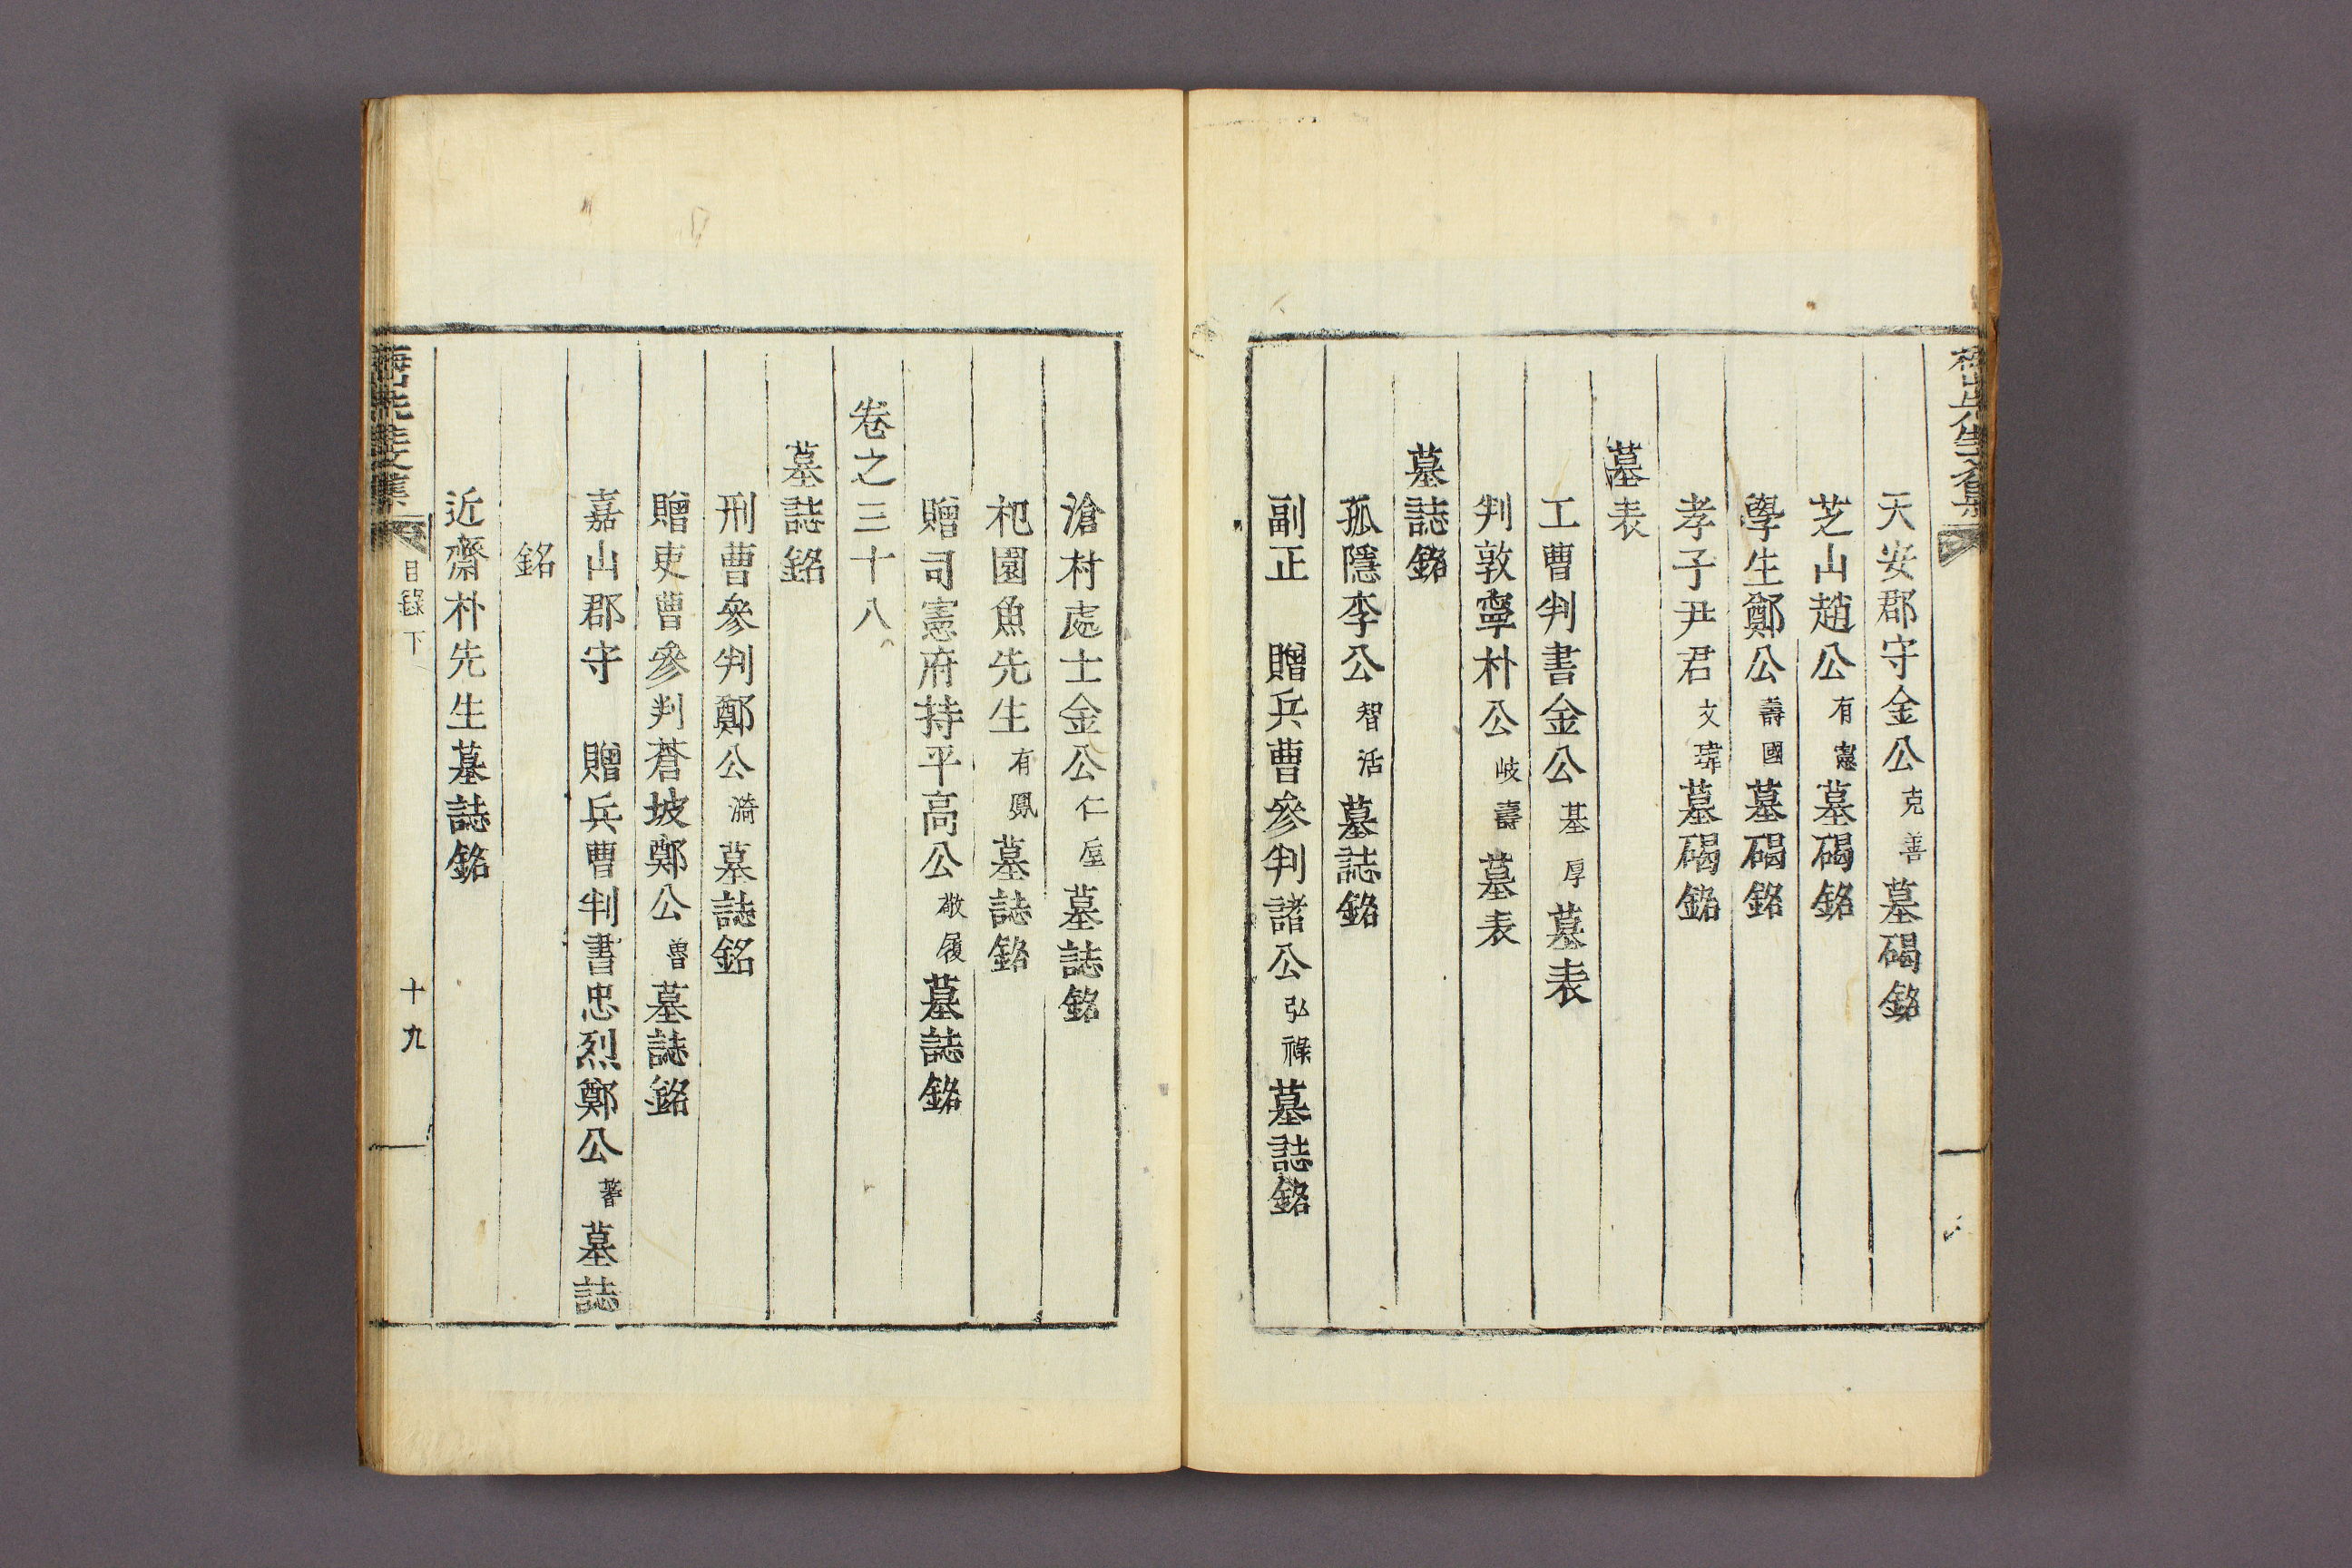 梅山先生文集
天安郡守金公克善墓碣銘
芝山趙公有憲墓碣銘
學生鄭公壽國墓碣銘
孝子尹君文瑋墓碣銘
墓表
工曹判書金公基厚墓表
判敦寧朴公岐壽墓表
墓誌銘
孤隱李公智活墓誌銘
副正 贈兵曹參判諸公弘祿墓誌銘
滄村處士金公仁垕墓誌銘
杞園魚先生有鳳墓誌銘
贈司憲府持平高公敬履墓誌銘
卷之三十八
墓誌銘
刑曹參判鄭公漪墓誌銘
贈吏曹參判蒼坡鄭公曾墓誌銘
嘉山郡守 贈兵曹判書忠烈鄭公蓍墓誌
銘
近齋朴先生墓誌銘
梅山先生文集 目錄下 十九